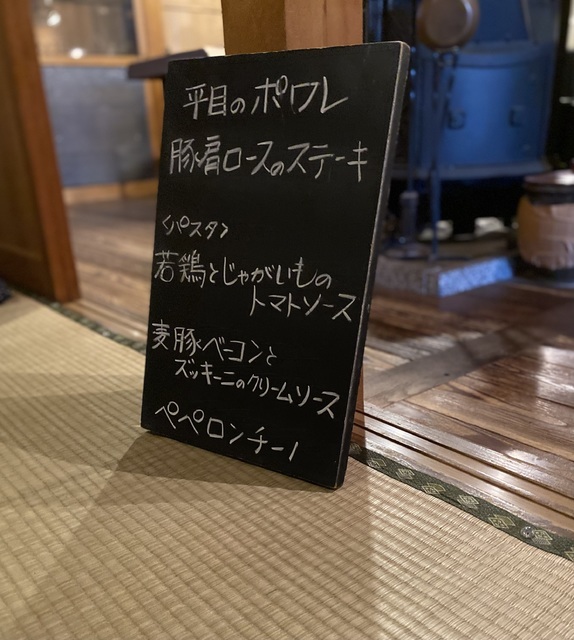 平目のポワレ
豚肩ロースのステーキ
<パスタ>
若鶏とじゃがいもの
トマトソース
麦豚ベーコンと
ズッキーニのクリームソース
ペペロンチーノ